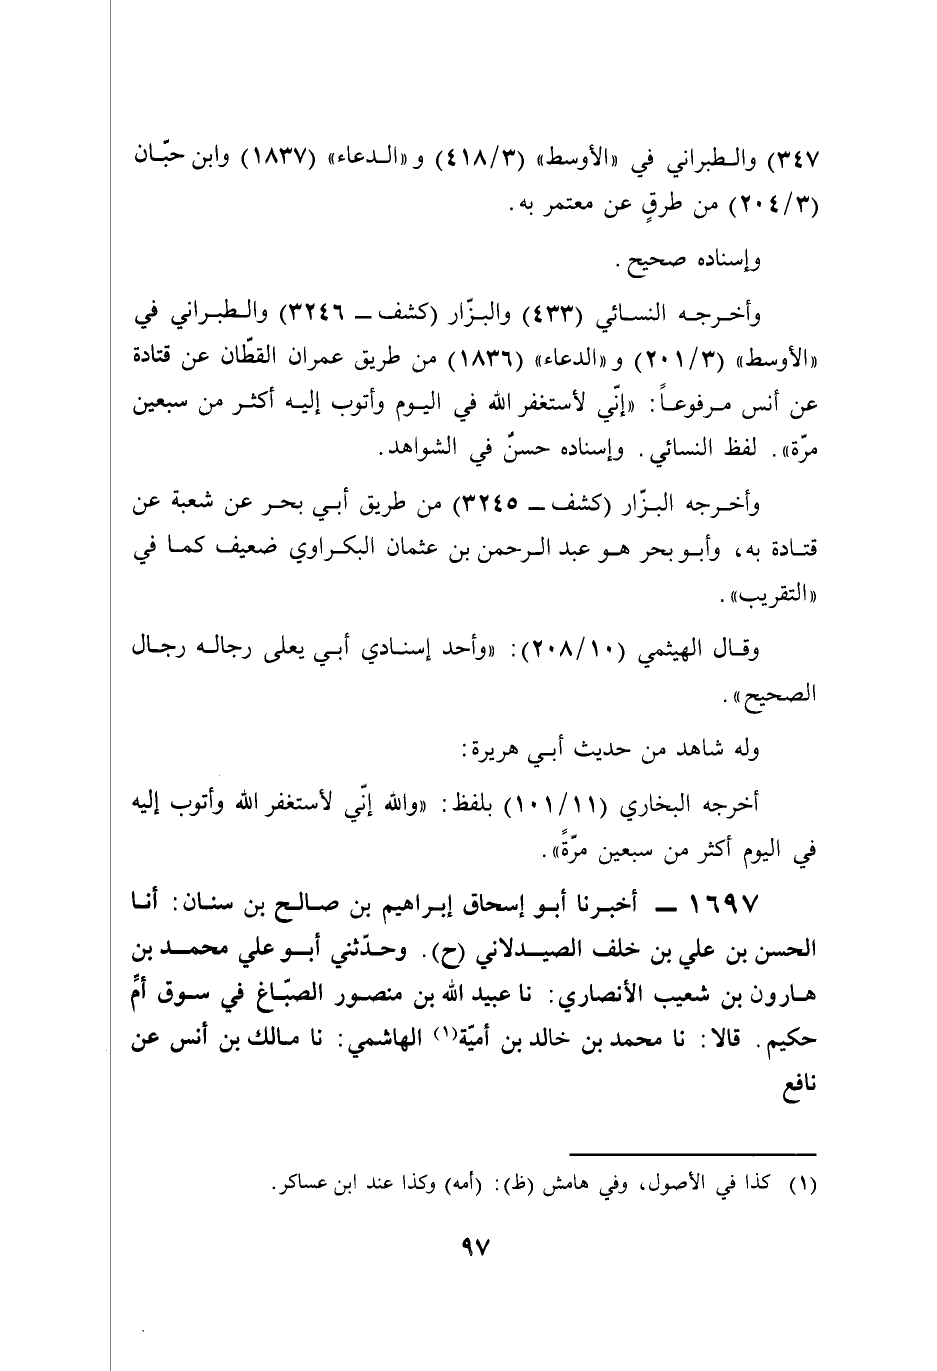 ٣٤٧) والطبراني في «الأوسط» (٤١٨/٣) و«الدعاء» (١٨٣٧) وابن حبّان
(٢٠٤/٣) من طرقٍ عن معتمر به.
وإسناده صحيح.
وأخرجه النسائي (٤٣٣) والبزّار (كشف ــ ٣٢٤٦) والطبراني في
«الأوسط» (٢٠١/٣) و«الدعاء» (١٨٣٦) من طريق عمران القطّان عن قتادة
عن أنس مرفوعاً: «إنّي لأستغفر الله في اليوم وأتوب إليه أكثر من سبعين
مرّة». لفظ النسائي. وإسناده حسنٌ في الشواهد.
وأخرجه البزّار (كشف ــ ٣٢٤٥) من طريق أبي بحر عن شعبة عن
قتادة به، وأبو بحر هو عبد الرحمن بن عثمان البكراوي ضعيف كما في
«التقريب».
وقال الهيثمي (٢٠٨/١٠): «وأحد إسنادي أبي يعلى رجاله رجال
الصحيح».
وله شاهد من حديث أبي هريرة:
أخرجه البخاري (١٠١/١١) بلفظ: «والله إنّي لأستغفر الله وأتوب إليه
في اليوم أكثر من سبعين مرّةً».
١٦٩٧ ــ أخبرنا أبو إسحاق إبراهيم بن صالح بن سنان: أنا
الحسن بن علي بن خلف الصيدلاني (ح). وحدّثني أبو علي محمد بن
هارون بن شعيب الأنصاري: نا عبيد الله بن منصور الصبّاغ في سوق أمِّ
حكيم. قالا: نا محمد بن خالد بن أميّة(١) الهاشمي: نا مالك بن أنس عن
نافع
(١) كذا في الأصول، وفي هامش (ظ): (أمه) وكذا عند ابن عساكر.
٩٧